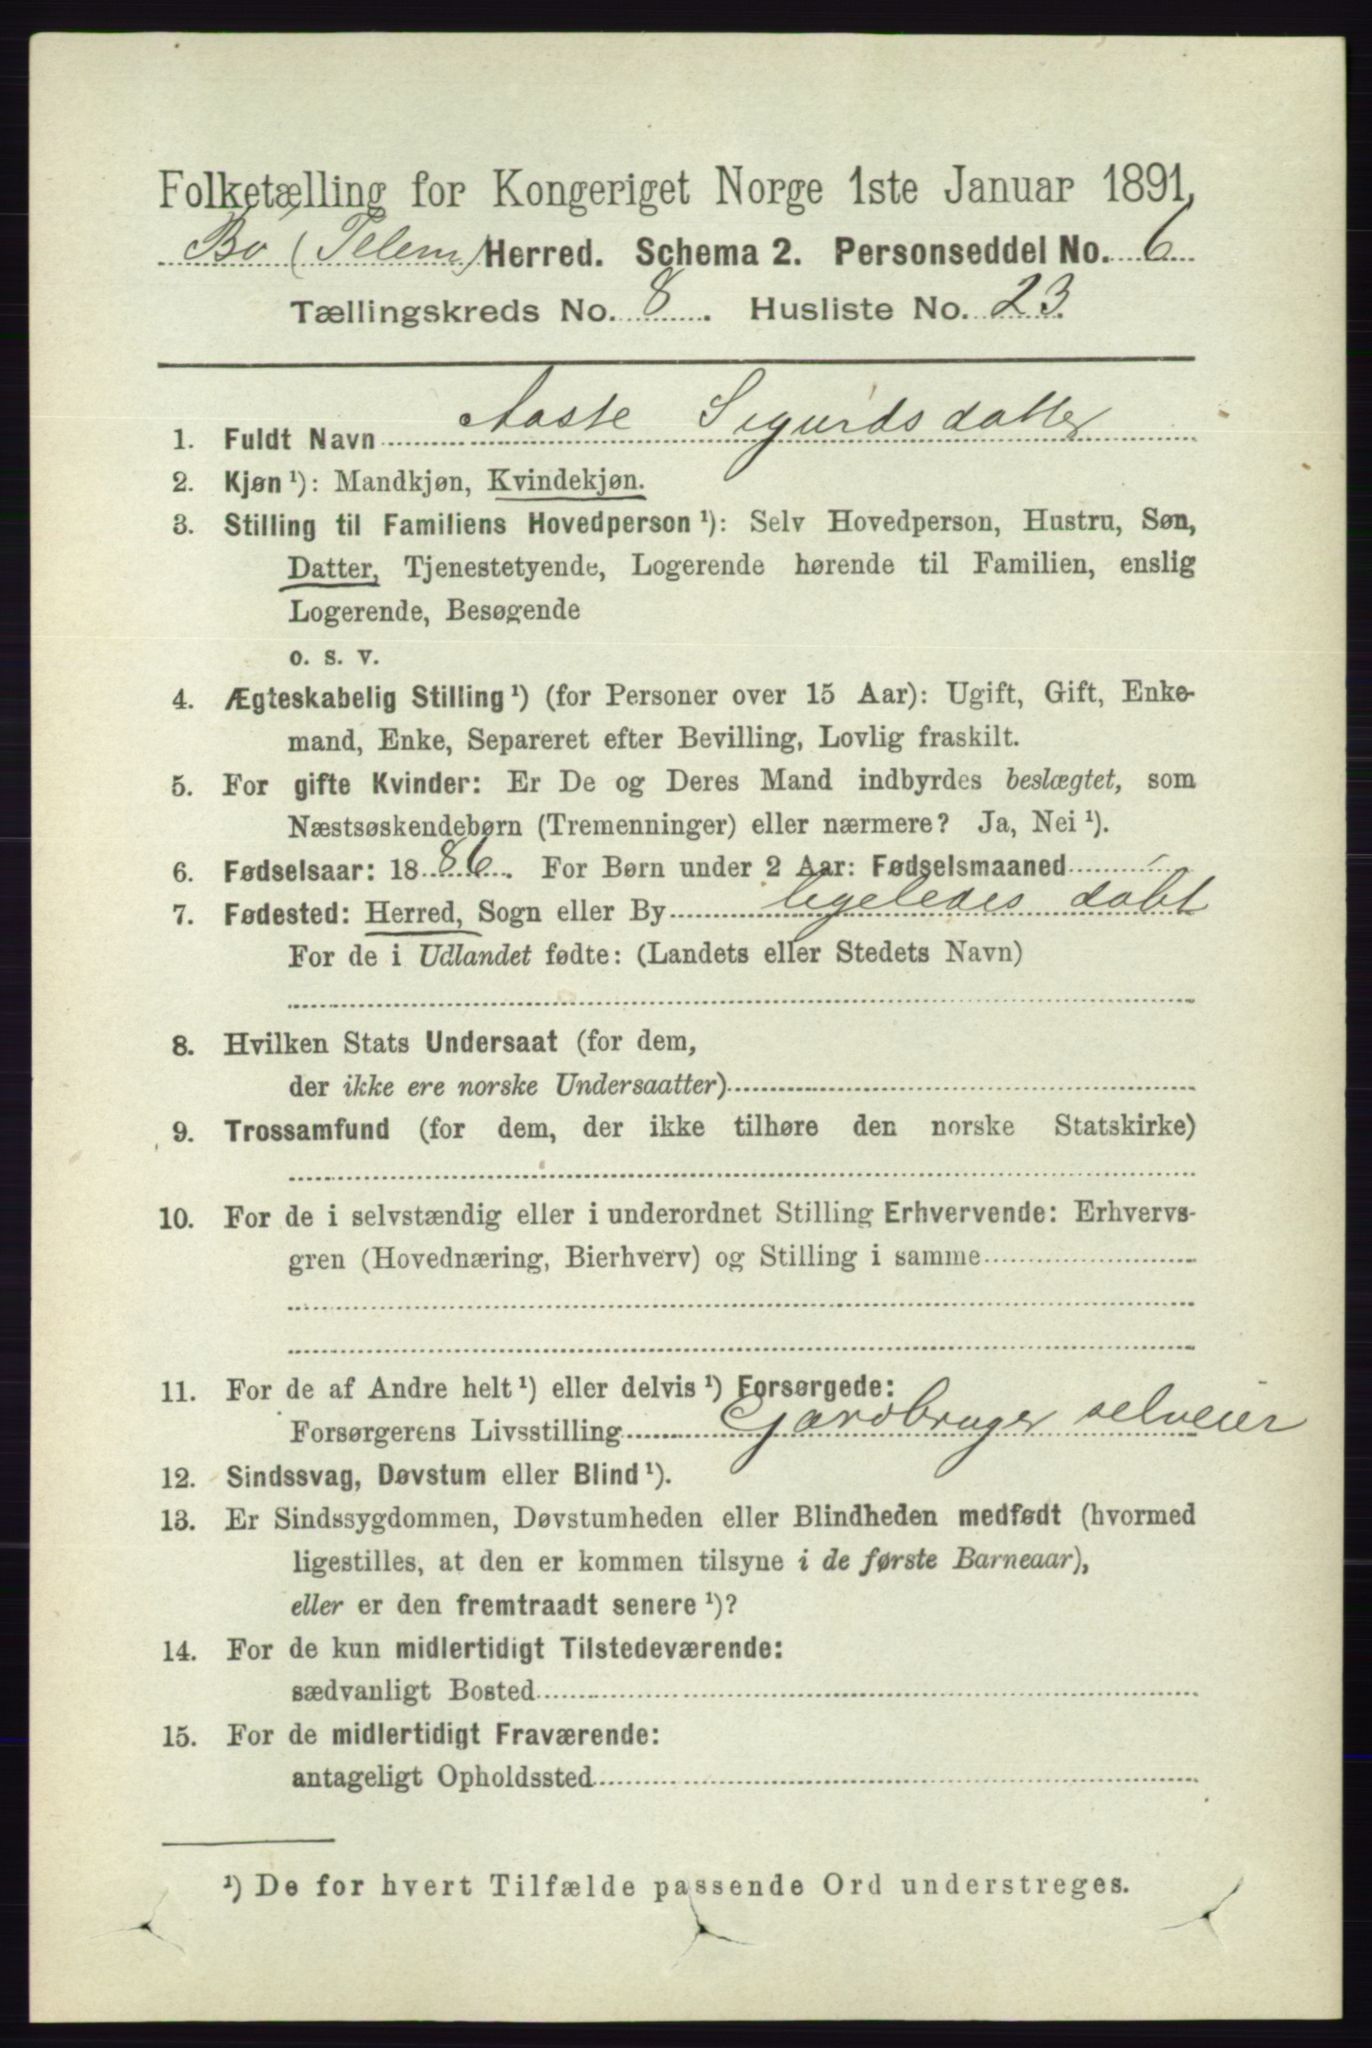 Folketælling for Kongeriget Norge 1ste Januar 1891.
Bø (Telem) Herred. Schema 2. Personseddel No. 6
Tællingskreds No. 8. Husliste No. 23.
1. Fuldt Navn Aaste Sigurdsdatter
2. Kjøn ¹): Mandkjøn, Kvindekjøn.
3. Stilling til Familiens Hovedperson ¹): Selv Hovedperson, Hustru, Søn,
Datter, Tjenestetyende, Logerende hørende til Familien, enslig
Logerende, Besøgende
o. s. v.
4. Ægteskabelig Stilling ¹) (for Personer over 15 Aar): Ugift, Gift, Enke-
mand, Enke, Separeret efter Bevilling, Lovlig fraskilt.
5. For gifte Kvinder: Er De og Deres Mand indbyrdes beslægtet, som
Næstsøskendebørn (Tremenninger) eller nærmere? Ja, Nei ¹).
6. Fødselsaar: 1886. For Børn under 2 Aar: Fødselsmaaned
7. Fødested: Herred, Sogn eller By ligeledes døbt
For de i Udlandet fødte: (Landets eller Stedets Navn)
8. Hvilken Stats Undersaat (for dem,
der ikke ere norske Undersaatter)
9. Trossamfund (for dem, der ikke tilhøre den norske Statskirke)
10. For de i selvstændig eller i underordnet Stilling Erhvervende: Erhvervs-
gren (Hovednæring, Bierhverv) og Stilling i samme
11. For de af Andre helt ¹) eller delvis ¹) Forsørgede:
Forsørgerens Livsstilling Gardbruger selveier
12. Sindssvag, Døvstum eller Blind ¹).
13. Er Sindssygdommen, Døvstumheden eller Blindheden medfødt (hvormed
ligestilles, at den er kommen tilsyne i de første Barneaar),
eller er den fremtraadt senere ¹)?
14. For de kun midlertidigt Tilstedeværende:
sædvanligt Bosted
15. For de midlertidigt Fraværende:
antageligt Opholdssted
¹) De for hvert Tilfælde passende Ord understreges.